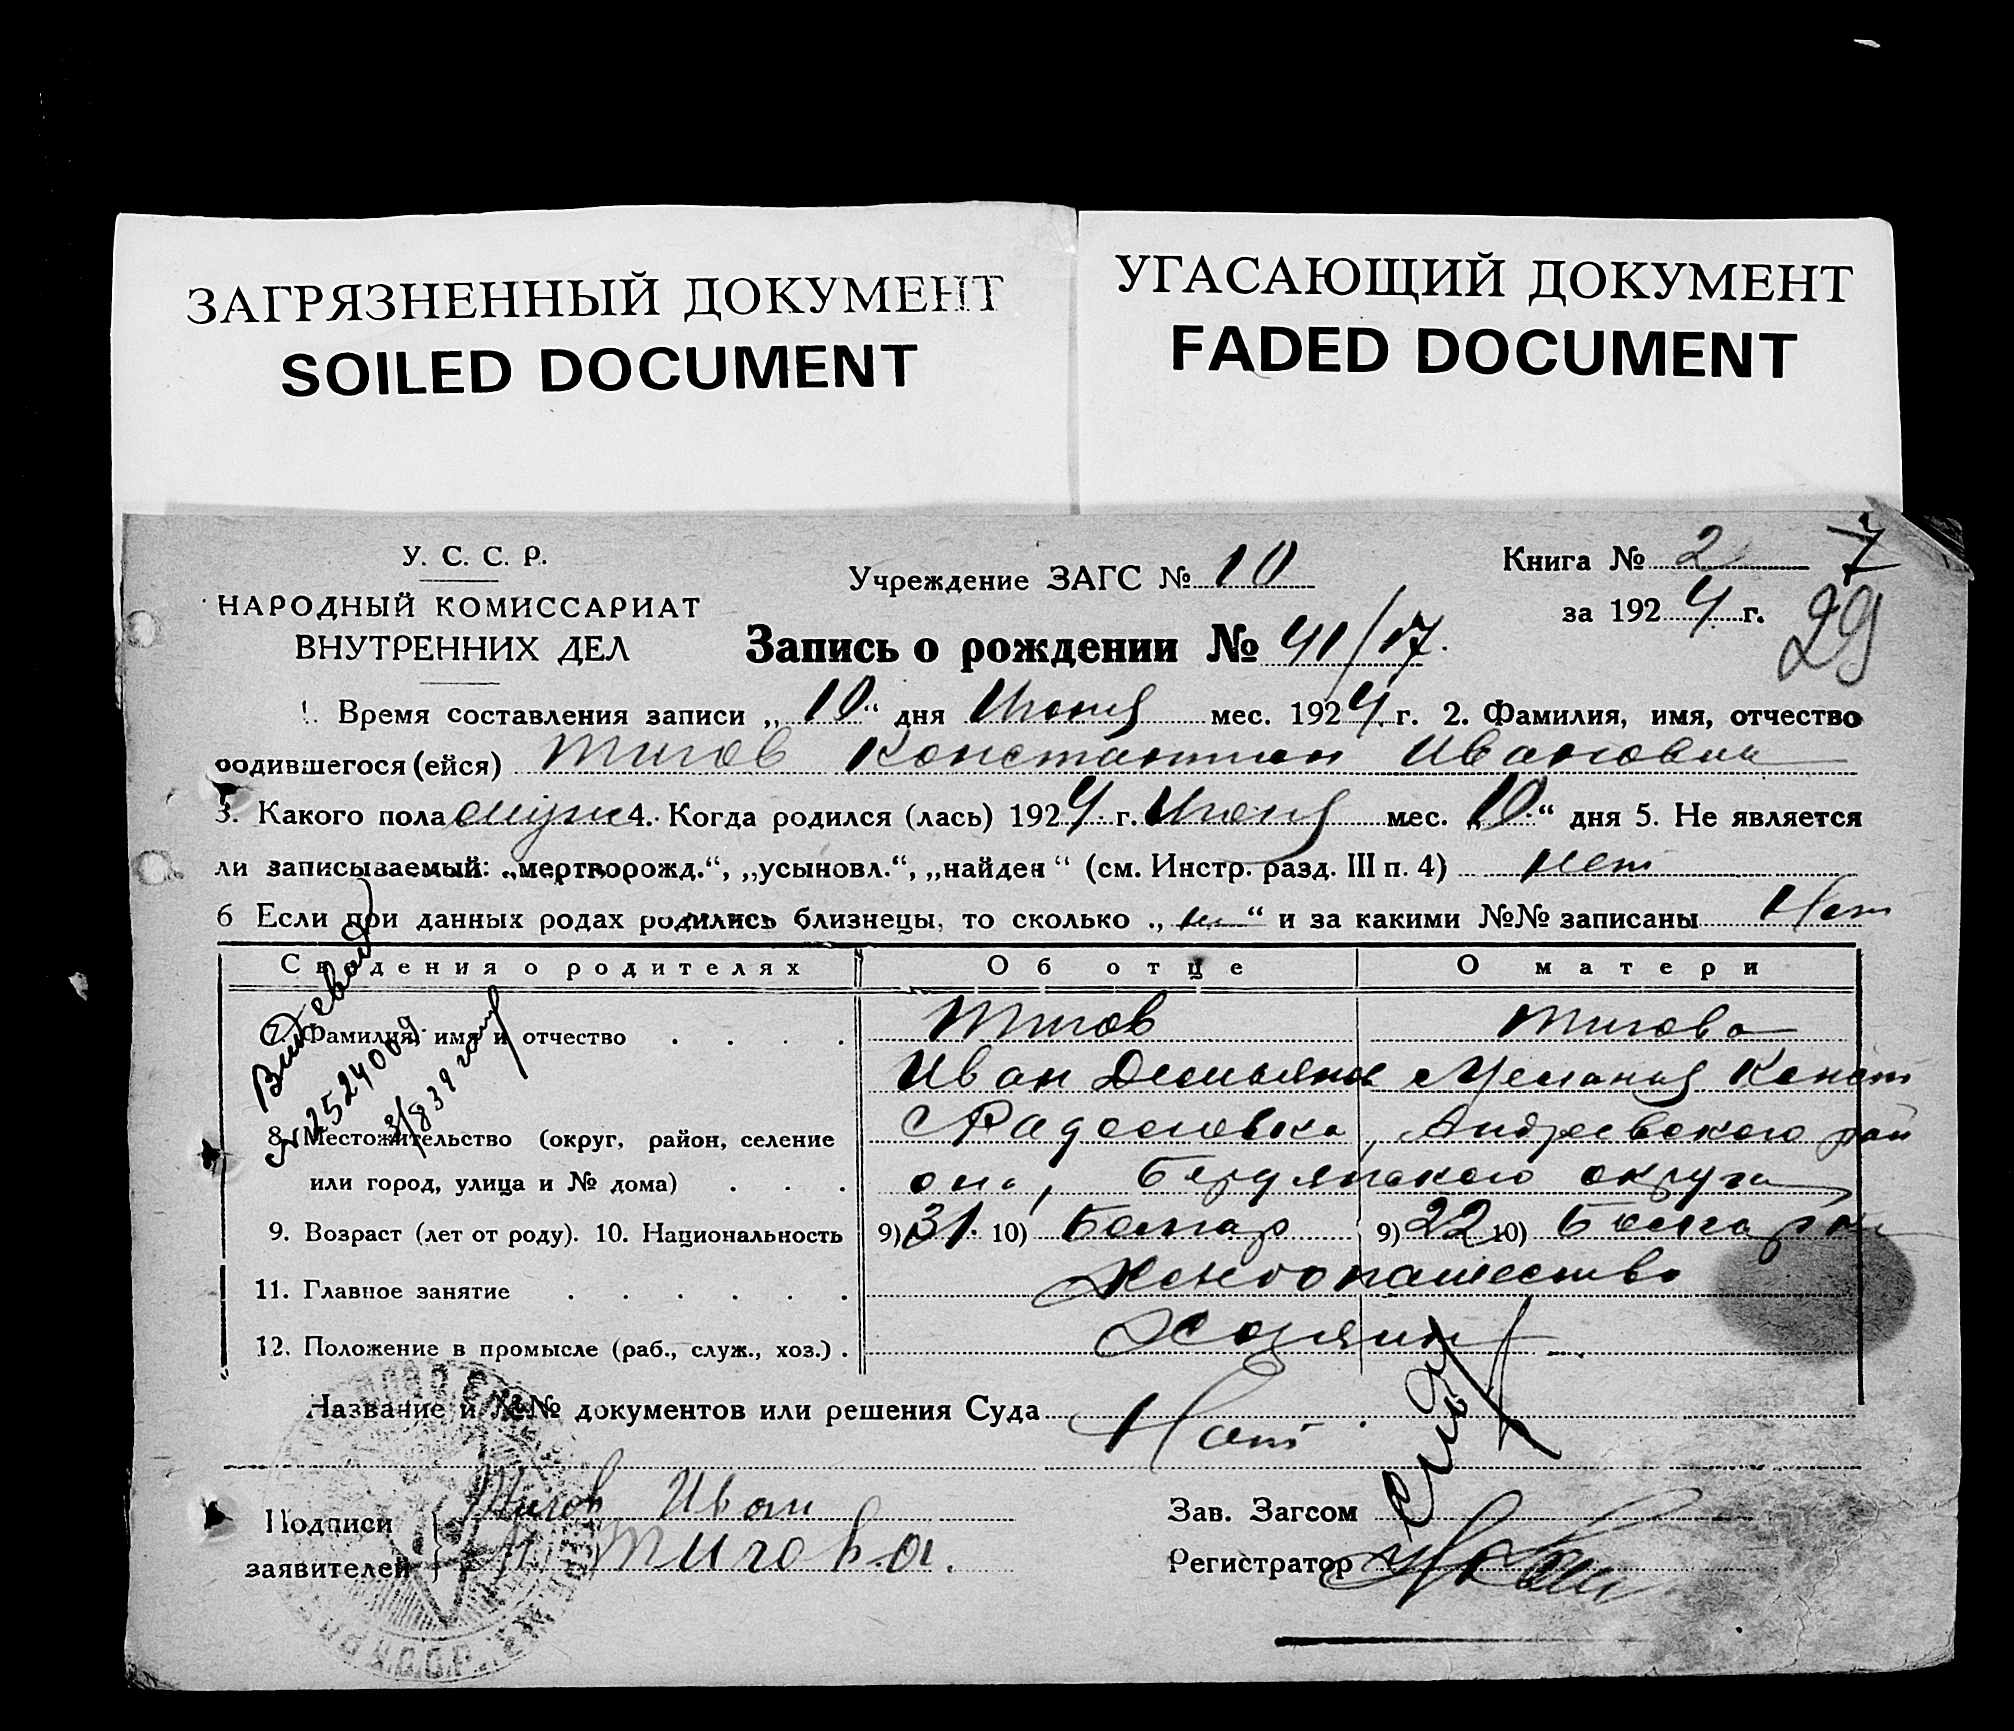 ЗАГРЯЗНЕННЫЙ ДОКУМЕНТ
SOILED DOCUMENT
УГАСАЮЩИЙ ДОКУМЕНТ
FADED DOCUMENT
У. С. С. Р.
НАРОДНЫЙ КОМИССАРИАТ
ВНУТРЕННИХ ДЕЛ
Учреждение ЗАГС № 10
Книга № 2 7
за 1924 г. 29
Запись о рождении № 41/17.
1. Время составления записи „10“ дня Июня мес. 1924 г. 2. Фамилия, имя, отчество
родившегося (ейся) Тигов Константин Иванович
3. Какого пола муж 4. Когда родился (лась) 1924 г. Июня мес. „10“ дня 5. Не является
ли записываемый: „мертворожд.“, „усыновл.“, „найден“ (см. Инстр. разд. III п. 4) нет
6 Если при данных родах родились близнецы, то сколько „ “ и за какими №№ записаны Нет
Сведения о родителях Об отце О матери
7. Фамилия, имя и отчество Тигов Тигова
Иван Демьянов Мелания Конст
8. Местожительство (округ, район, селение Радоловка, Андреевского рай
или город, улица и № дома) она, Бердянского округа
9. Возраст (лет от роду). 10. Национальность 9) 31. 10) Болгар 9) 22 10) Болгарка
11. Главное занятие Хлебопашество
12. Положение в промысле (раб., служ., хоз.) Хозяин
Название и №№ документов или решения Суда Нет
Подписи Тигов Иван
заявителей Тигова.
Зав. Загсом
Регистратор